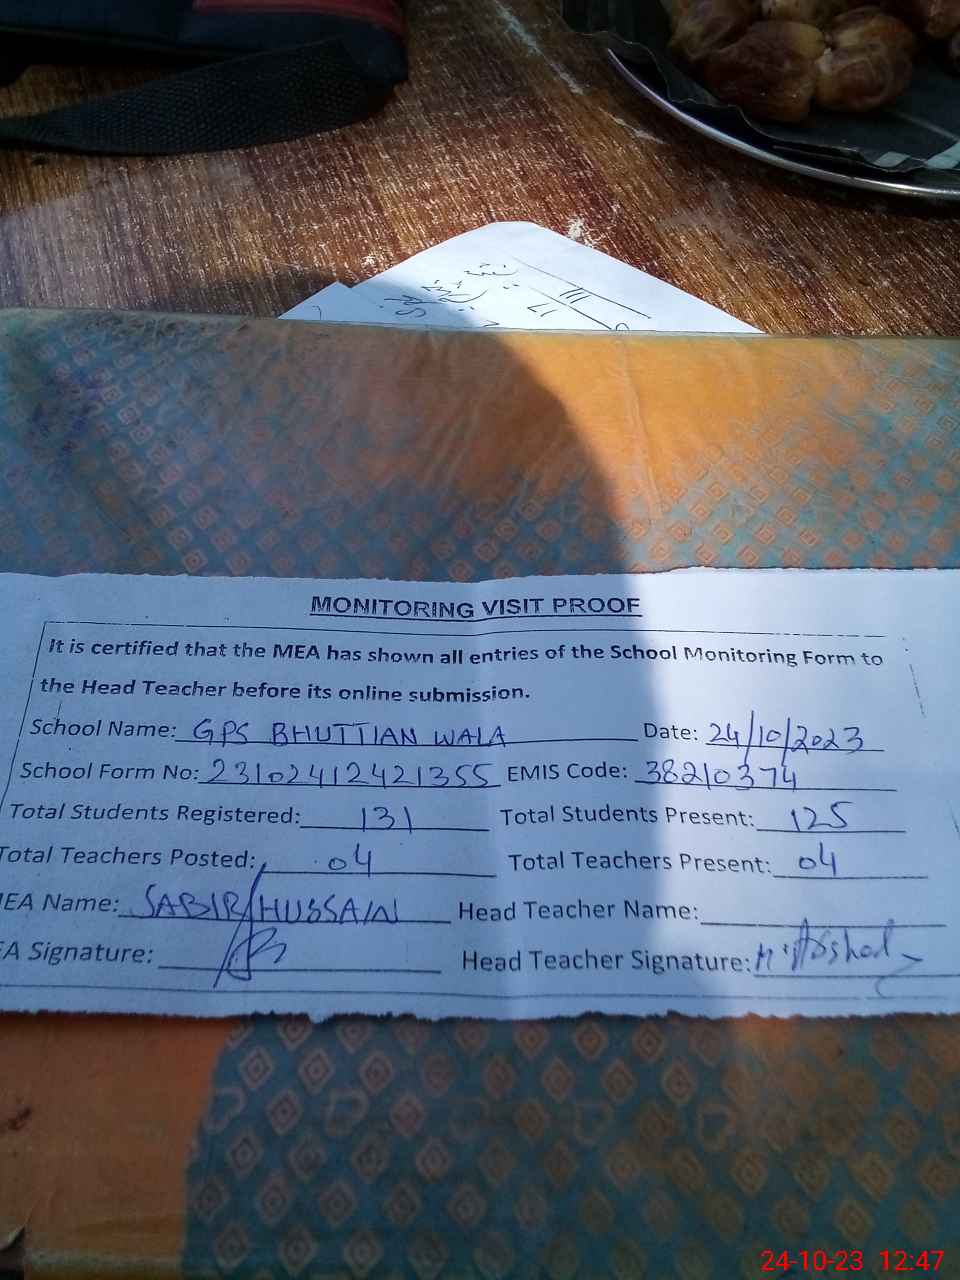 MONITORING VISIT PROOF
It is certified that the MEA has shown all entries of the School Monitoring Form to
the Head Teacher before its online submission.
School Name: GPS BHUTTIAN WALA Date: 24/10/2023
School Form No: 23102412421355 EMIS Code: 38210374
Total Students Registered: 131 Total Students Present: 125
Total Teachers Posted: 04 Total Teachers Present: 04
EA Name: SABIR HUSSAIN Head Teacher Name:
A Signature: Head Teacher Signature: M. Arshad
24-10-23 12:47